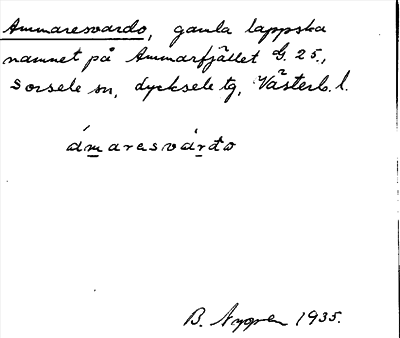 Ammaresvardo, gamla lappska
namnet på Ammarfjället G. 25.,
Sorsele sn, Lycksele tg, Västerb. l.
ámaresvárđo
B. Nygren 1935.